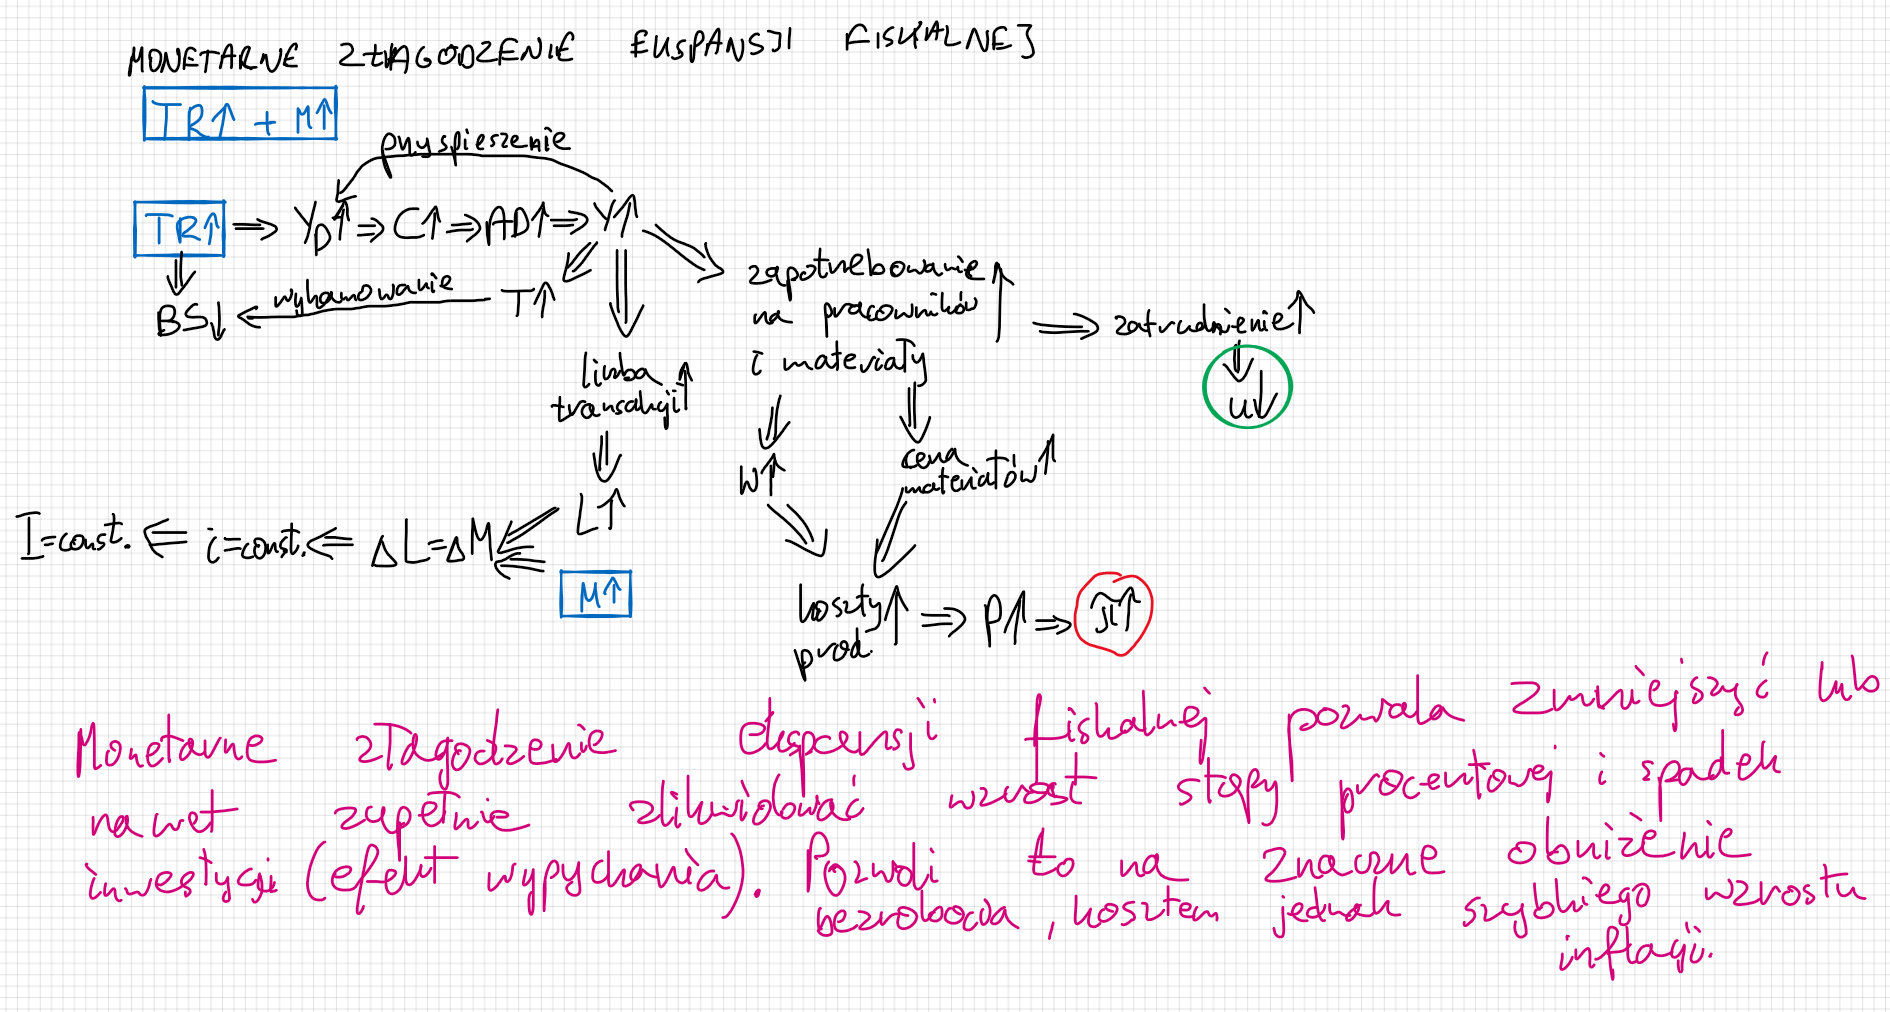 MONETARNE ZŁAGODZENIE EKSPANSJI FISKALNEJ
TR↑ + M↑
przyspieszenie
TR↑ ⇒ Y_D↑ ⇒ C↑ ⇒ AD↑ ⇒ Y↑
BS↓ wyhamowanie T↑
zapotrzebowanie ↑
na pracowników
i materiały
⇒ zatrudnienie↑
u↓
liczba
transakcji↑
W↑
cena
materiałów↑
L↑
I=const. ⇐ i=const. ⇐ ΔL=ΔM
M↑
koszty↑
prod.
⇒ P↑ ⇒ π↑
Monetarne złagodzenie ekspansji fiskalnej pozwala zmniejszyć lub
nawet zupełnie zlikwidować wzrost stopy procentowej i spadek
inwestycji (efekt wypychania). Pozwoli to na znaczne obniżenie
bezrobocia, kosztem jednak szybkiego wzrostu
inflacji.